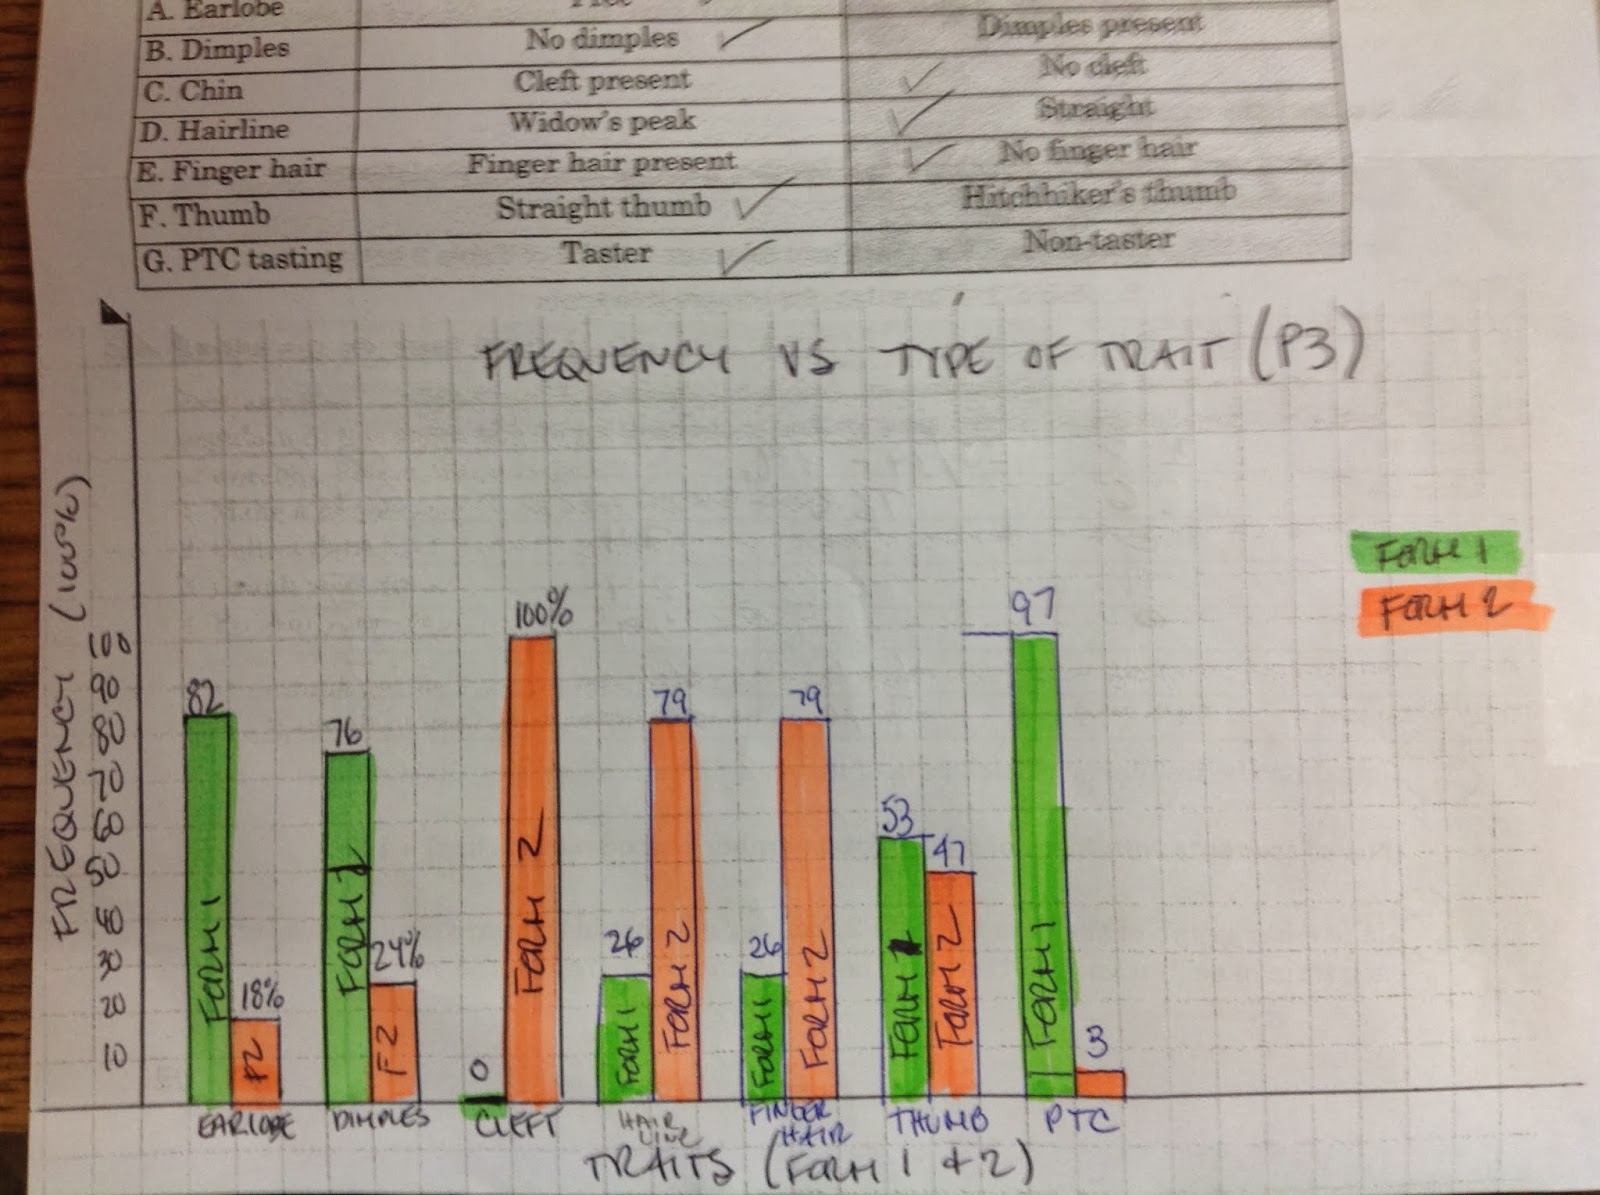 A. Earlobe Free
B. Dimples No dimples ✓ Dimples present
C. Chin Cleft present ✓ No cleft
D. Hairline Widow's peak ✓ Straight
E. Finger hair Finger hair present ✓ No finger hair
F. Thumb Straight thumb ✓ Hitchhiker's thumb
G. PTC tasting Taster ✓ Non-taster
FREQUENCY VS TYPE OF TRAIT (P3)
FREQUENCY (100%)
FORM 1
FORM 2
100
90
80
70
60
50
40
30
20
10
82
FORM 1
18%
F2
76
FORM 1
24%
F2
0
100%
FORM 2
26
FORM 1
79
FORM 2
26
FORM 1
79
FORM 2
53
FORM 1
47
FORM 2
97
FORM 1
3
EARLOBE
DIMPLES
CLEFT
HAIR
LINE
FINGER
HAIR
THUMB
PTC
TRAITS (FORM 1 & 2)